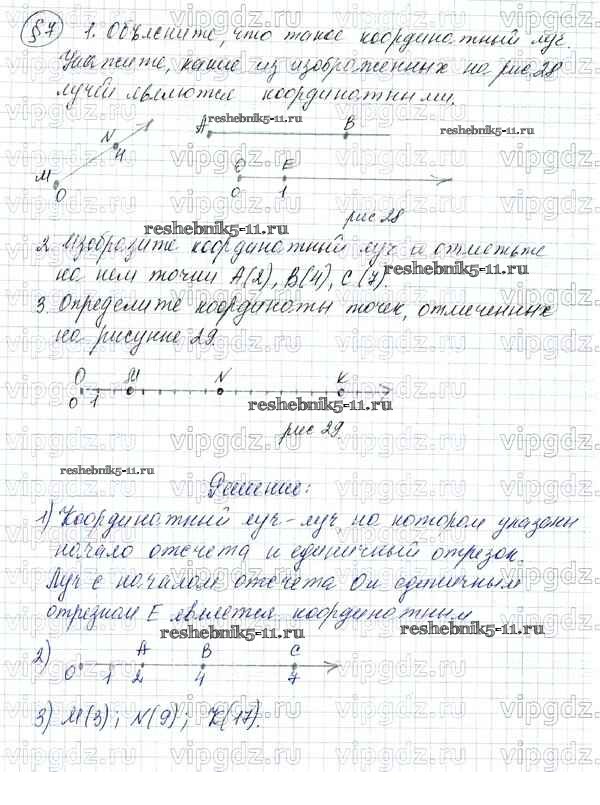 §7 1. Объясните, что такое координатный луч.
Укажите, какие из изображенных на рис 28
лучей являются координатными.
reshebnik5-11.ru
reshebnik5-11.ru
N A B
4
M O E
0 0 1
рис 28
reshebnik5-11.ru
2. Изобразите координатный луч и отметьте
на нем точки A(2), B(4), C(7).
reshebnik5-11.ru
3. Определите координаты точек, отмеченных
на рисунке 29.
O M N K
0 1
reshebnik5-11.ru
рис 29.
reshebnik5-11.ru
Решение:
1) Координатный луч - луч, на котором указаны
начало отсчета и единичный отрезок.
Луч с началом отсчета O и единичным
отрезком E является координатным
reshebnik5-11.ru
reshebnik5-11.ru
2) A B C
0 1 2 4 7
3) M(3); N(9); K(17).
vipgdz.ru